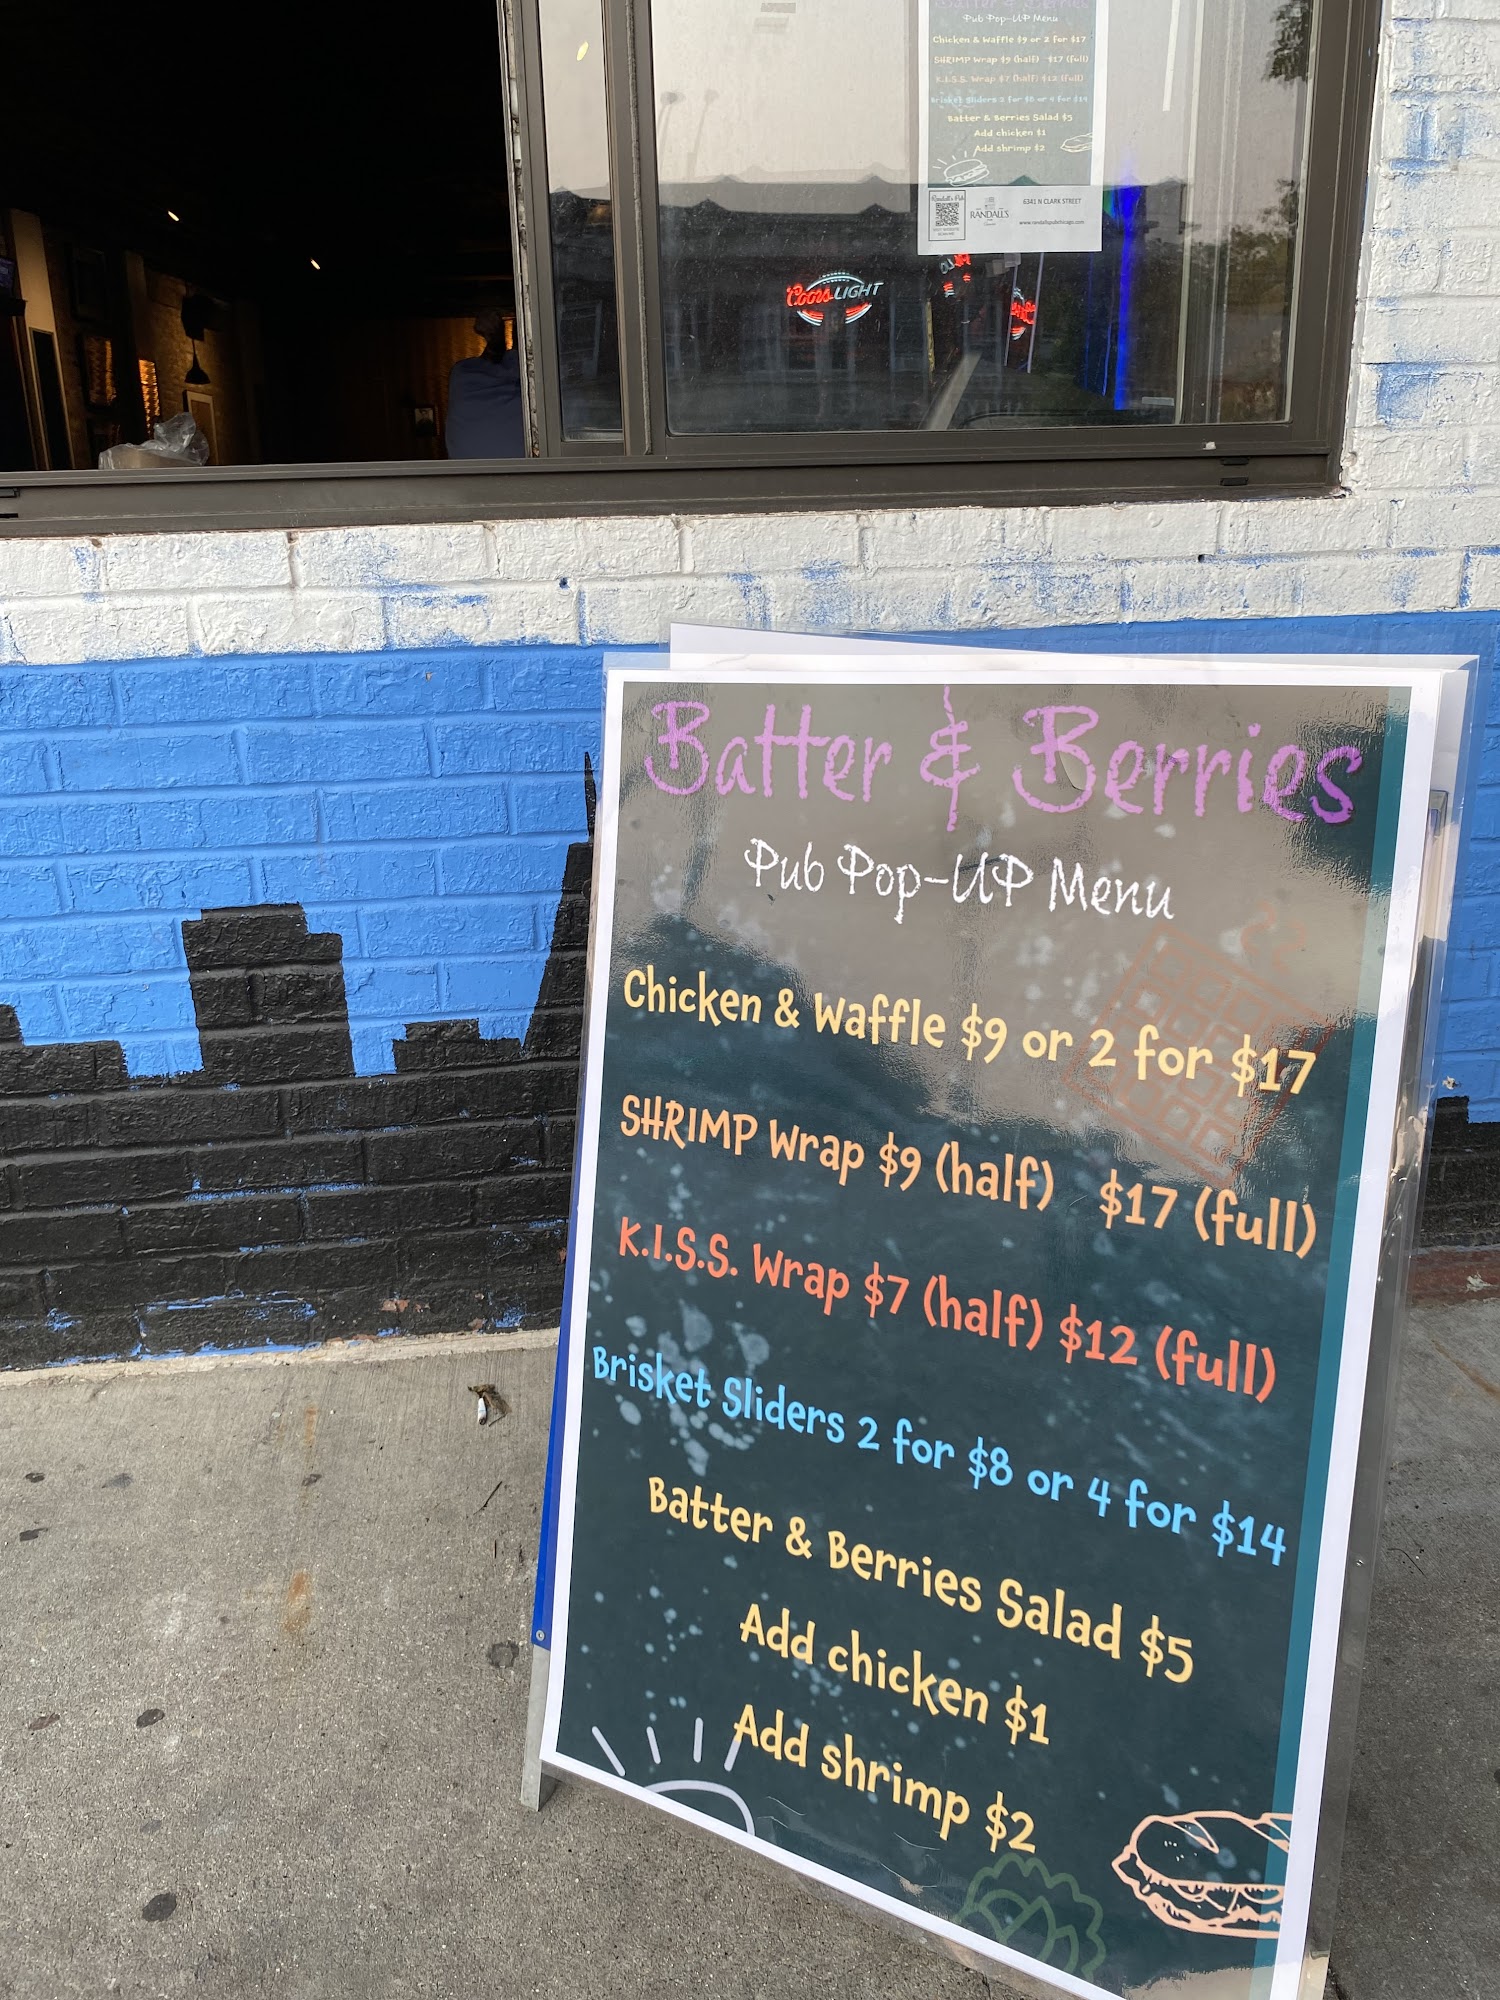 Batter & Berries
Pub Pop-UP Menu
Chicken & Waffle $9 or 2 for $17
SHRIMP Wrap $9 (half) $17 (full)
K.I.S.S. Wrap $7 (half) $12 (full)
Brisket Sliders 2 for $8 or 4 for $14
Batter & Berries Salad $5
Add chicken $1
Add shrimp $2
Randall's Pub
RANDALL'S
6341 N CLARK STREET
www.randallspubchicago.com
Coors LIGHT
Batter & Berries
Pub Pop-UP Menu
Chicken & Waffle $9 or 2 for $17
SHRIMP Wrap $9 (half) $17 (full)
K.I.S.S. Wrap $7 (half) $12 (full)
Brisket Sliders 2 for $8 or 4 for $14
Batter & Berries Salad $5
Add chicken $1
Add shrimp $2